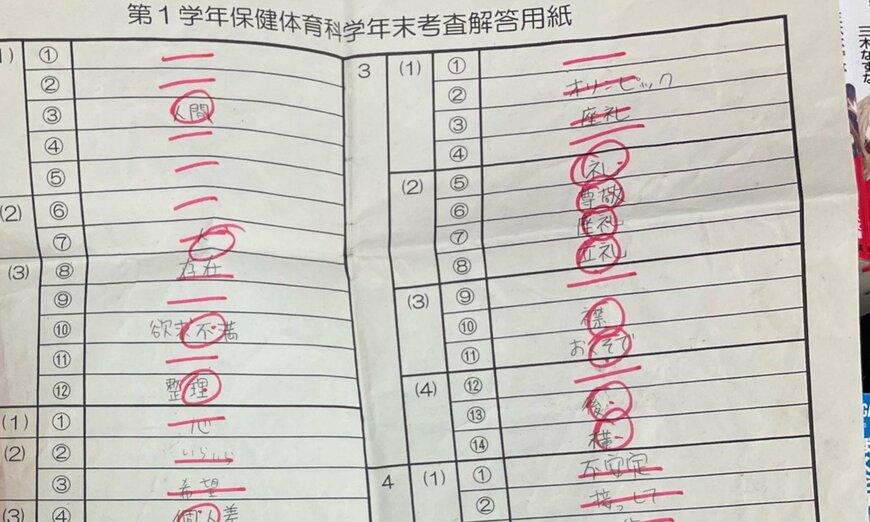 第1学年保健体育科学年末考査解答用紙
1)
①
②
③ 人間
④
⑤
(2) ⑥
⑦ 人
(3) ⑧ 存在
⑨
⑩ 欲求不満
⑪
⑫ 整理
(1) ① 心
(2) ② いらいら
③ 希望
(3) ④ 個人差
3 (1) ①
② オリンピック
③ 座礼
④
(2) ⑤ 礼
⑥ 尊敬
⑦ 座礼
⑧ 立礼
(3) ⑨
⑩ 襟
⑪ おくそで
(4) ⑫
⑬ 後
⑭ 横
4 (1) ① 不安定
② 接して
三木なずな